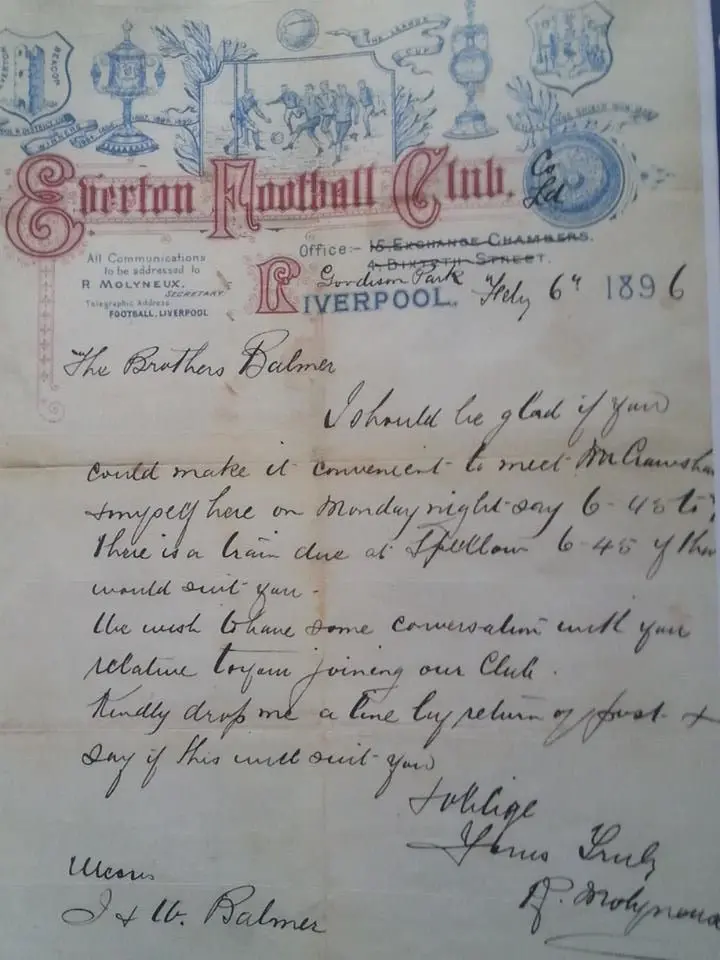 EVERTON
THE LEAGUE
CUP
WINNERS
Everton Football Club. Co
Ld
All Communications
to be addressed to
R MOLYNEUX.
SECRETARY.
Telegraphic Address
FOOTBALL, LIVERPOOL
Office:- 15. EXCHANGE CHAMBERS.
Goodison Park
LIVERPOOL. Feby 6th 1896
The Brothers Balmer
I should be glad if you
could make it convenient to meet Mr Crawsha
& myself here on Monday night say 6-45 to
There is a train due at Spellow 6-45 if tha
would suit you -
We wish to have some conversation with you
relative to your joining our Club.
Kindly drop me a line by return of post &
say if this will suit you
& oblige
Yours Truly
R. Molyneux
Messrs
J & W. Balmer